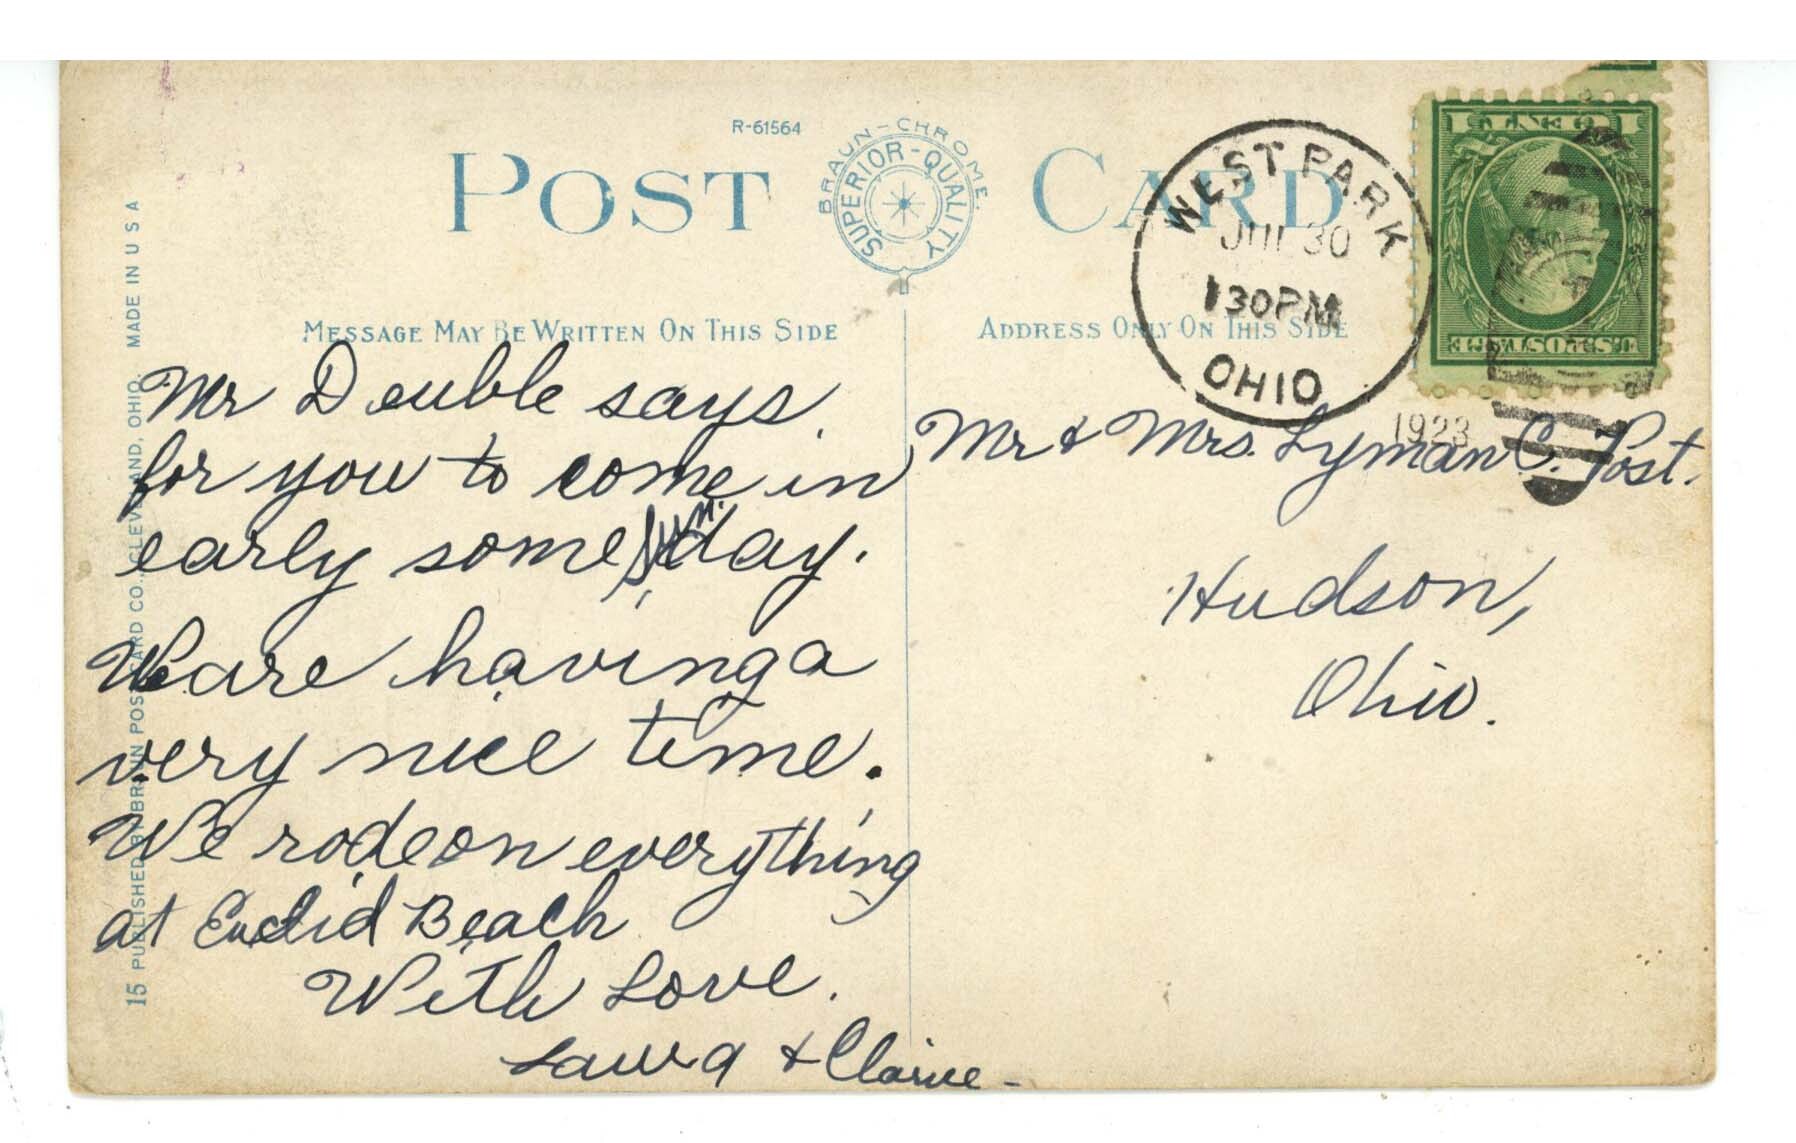 R-61564
POST CARD
BRAUN-CHROME.
SUPERIOR-QUALITY
MESSAGE MAY BE WRITTEN ON THIS SIDE
ADDRESS ONLY ON THIS SIDE
WEST PARK
JUL 30
130PM
OHIO
1923
1 CENT 1
U.S. POSTAGE
15 PUBLISHED BY BRAUN POST CARD CO., CLEVELAND, OHIO. MADE IN U S A
Mr Deuble says
for you to come in
early some Sun. day.
We are having a
very nice time.
We rode on everything
at Euclid Beach
With Love.
Laura & Claire
Mr & Mrs. Lyman C. Post.
Hudson,
Ohio.